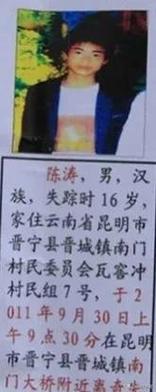 陈涛，男，汉
族，失踪时16岁，
家住云南省昆明市
晋宁县晋城镇南门
村民委员会瓦窑冲
村民组7号，于2
011年9月30日上
午9点30分在昆明
市晋宁县晋城镇南
门大桥附近离奇失